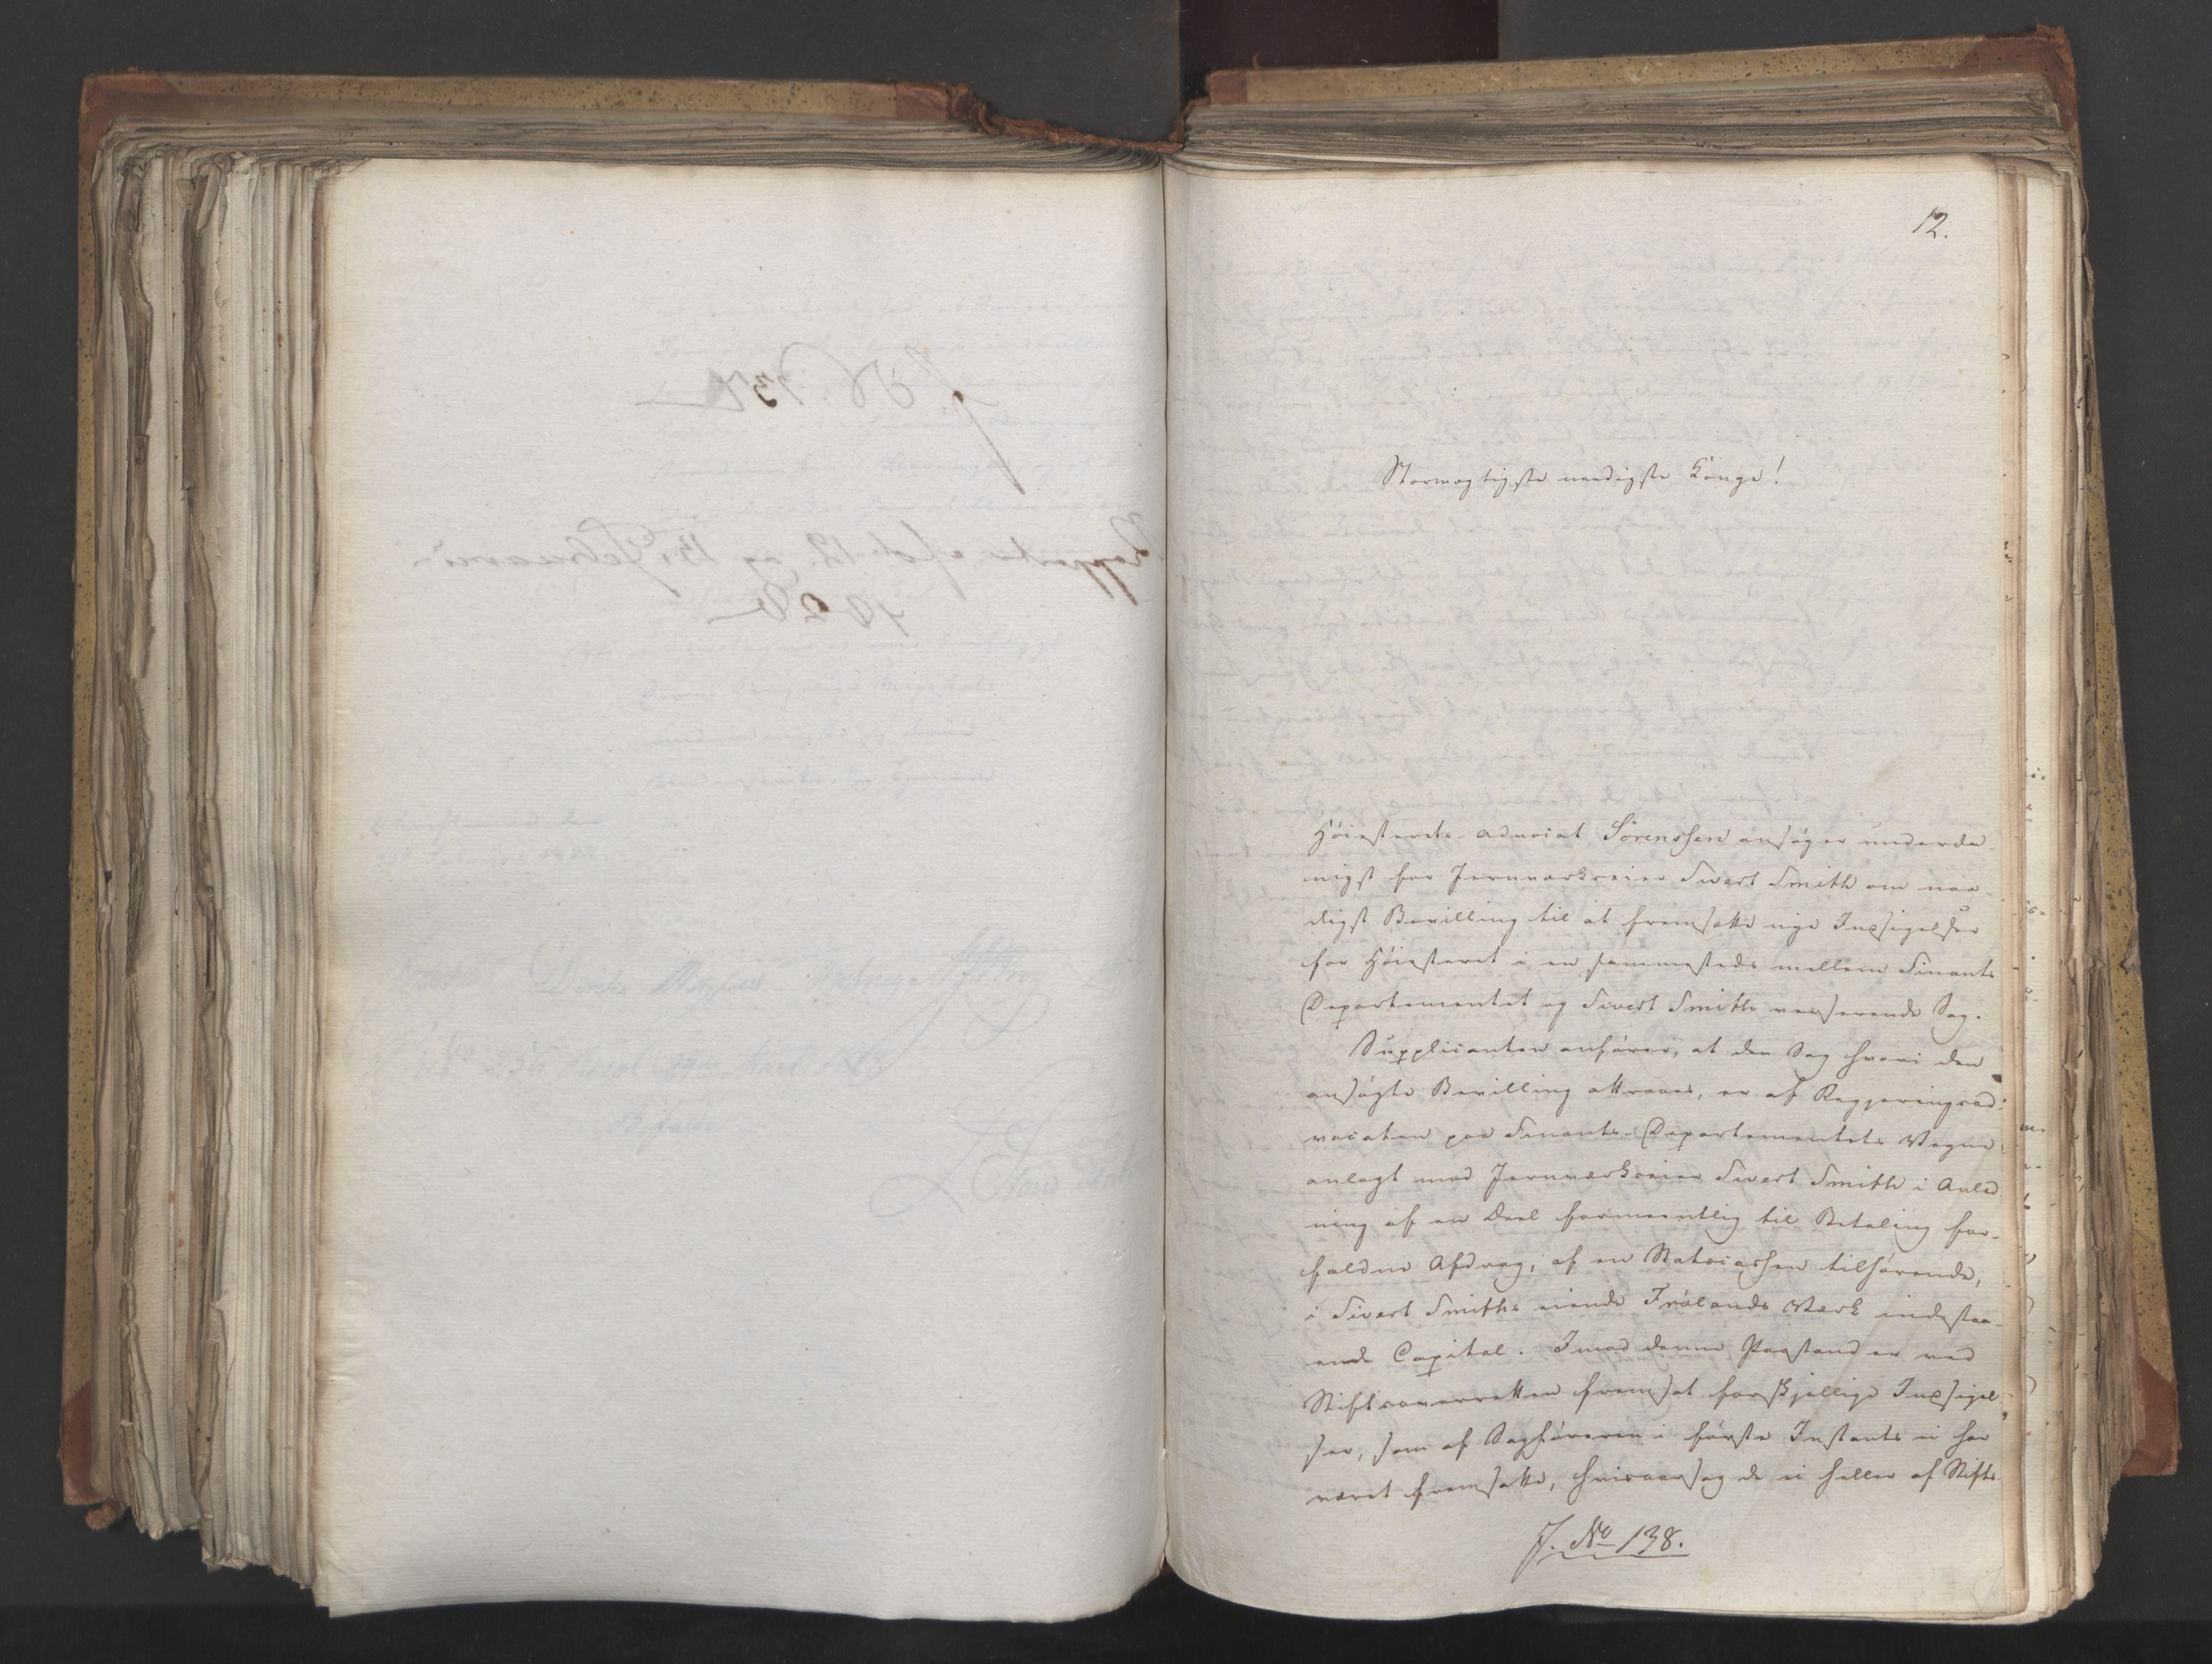 12.
Stormægtigste naadigste Konge!
Höiesterets-Advocat Sörenssen ansöger underda-
nigst for Jernværkseier Sivert Smith om naa-
digst Bevilling til at fremsætte nye Indsigelser
for Höiesteret i en sammesteds mellem Finants
Departementet og Sivert Smith verserende Sag.
Supplicanten anförer, at den Sag hvori den
ansögte Bevilling attraaes, er af Regjeringsad-
vocaten paa Finants-Departementets Vegne
anlagt mod Jernværkseier Sivert Smith i Anled
ning af en Deel formeentlig til Betaling for-
faldne Afdrag, af en Statscassen tilhörende,
i Sivert Smiths eiende Frolands Værk indestaa-
ende Capital. Imod denne Paastand er ved
Stiftsoverretten fremsat forskjellige Indsigel-
ser, som af Sagföreren i förste Instants ei har
været fremsatte, hvisaarsag de ei heller af Stifts
J. No 138.